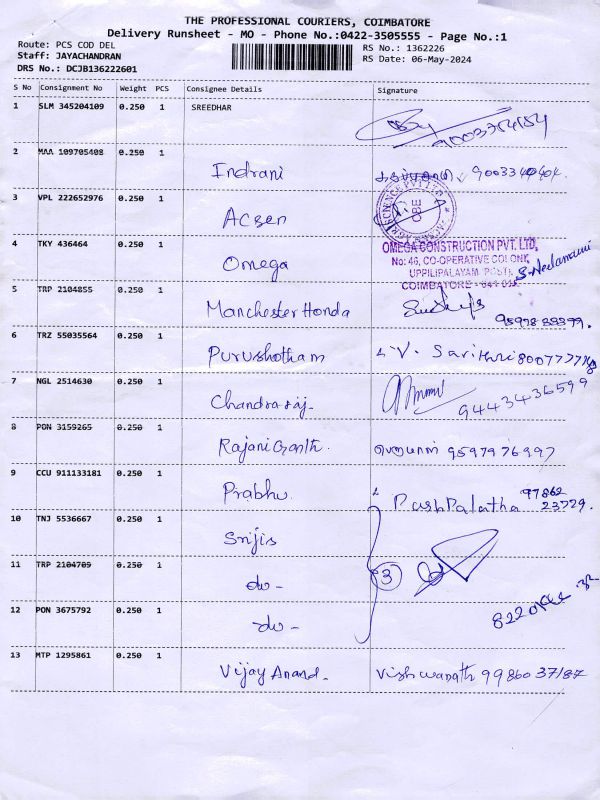 THE PROFESSIONAL COURIERS, COIMBATORE
Delivery Runsheet - MO - Phone No.:0422-3505555 - Page No.:1
Route: PCS COD DEL
Staff: JAYACHANDRAN
DRS No.: DCJB136222601
RS No.: 1362226
RS Date: 06-May-2024
S No Consignment No Weight PCS Consignee Details Signature
1 SLM 345204109 0.250 1 SREEDHAR
2 MAA 109705408 0.250 1 Indrani
3 VPL 222652976 0.250 1 Acsen
4 TKY 436464 0.250 1 Omega
OMEGA CONSTRUCTION PVT. LTD,
No: 46, CO-OPERATIVE COLONY,
UPPILIPALAYAM POST,
COIMBATORE - 641 015.
S. Neelamani
5 TRP 2104855 0.250 1 Manchester Honda
6 TRZ 55035564 0.250 1 Purushotham V. Savithri
7 NGL 2514630 0.250 1 Chandraraj- 9443436599
8 PON 3159265 0.250 1 RajaniGanth. 9597976997
9 CCU 911133181 0.250 1 Prabhu. PushPalatha 97862 23729.
10 TNJ 5536667 0.250 1 Srijis
11 TRP 2104709 0.250 1 do- 3
12 PON 3675792 0.250 1 do-
13 MTP 1295861 0.250 1 Vijay Anand- Vishwanath 9986037187